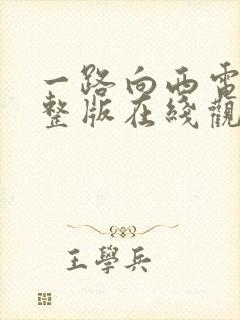 一路向西電
整版在綫觀
王學兵